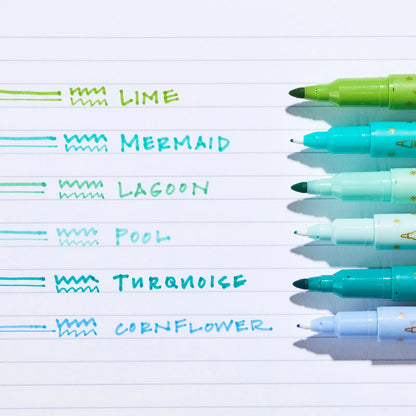 LIME
MERMAID
LAGOON
POOL
TURQUOISE
CORNFLOWER